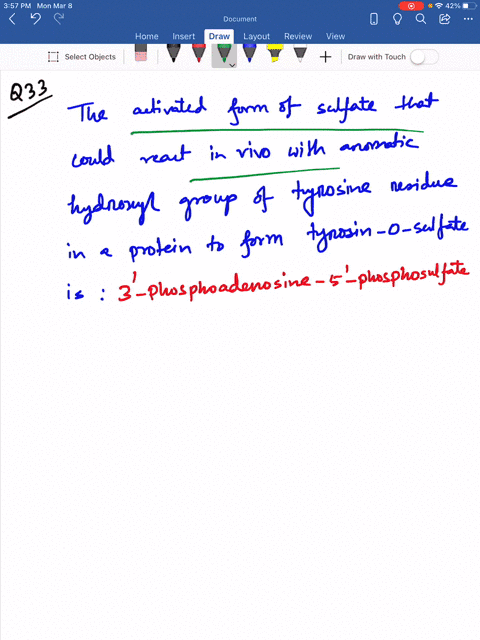 3:57 PM Mon Mar 8
42%
Document
Home Insert Draw Layout Review View
Select Objects
Draw with Touch
Q33
The activated form of sulfate that
could react in vivo with aromatic
hydroxyl group of tyrosine residue
in a protein to form tyrosin-O-sulfate
is : 3'-phosphoadenosine-5'-phosphosulfate